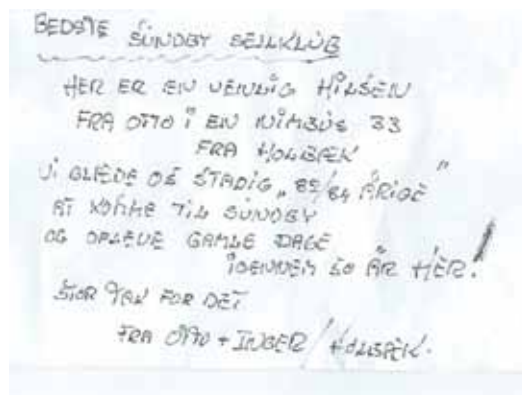 BEDSTE SUNDBY SEJLKLUB
HER ER EN VENLIG HILSEN
FRA OTTO i EN NiMBUS 33
FRA HOLBÆK
Vi GLÆDE OS STADIG „82/84 ÅRiGE"
AT KOMME TiL SUNDBY
OG OPLEVE GAMLE DAGE
iGENNEM 50 ÅR HER!
STOR TAK FOR DET
FRA OTTO + INGER / HOLBÆK.